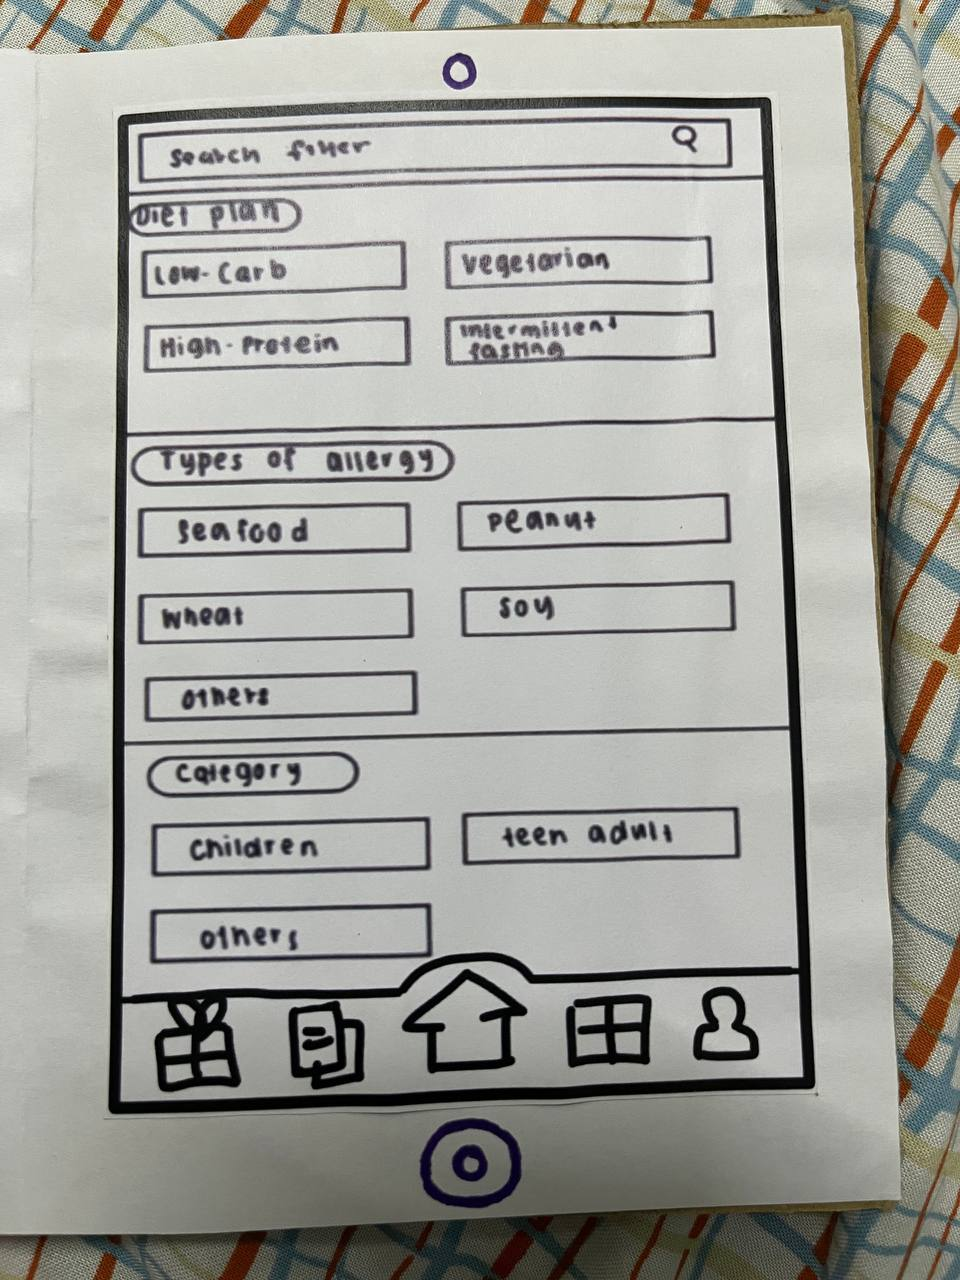 search filter
Diet plan
Low-Carb
vegetarian
High-Protein
intermittent
fasting
Types of allergy
seafood
peanut
wheat
soy
others
category
children
teen adult
others